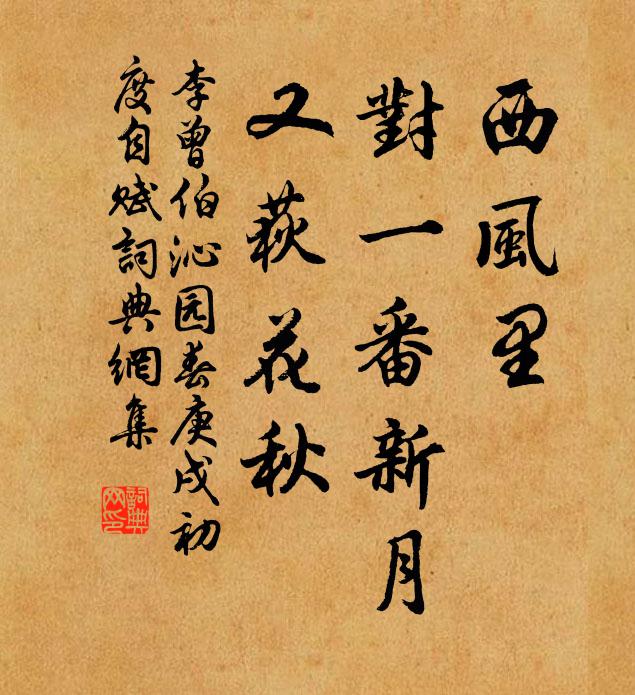 西風里
對一番新月
又萩花秋
李曾伯沁园春庚戌初
度自赋詞典網集
詞典网印